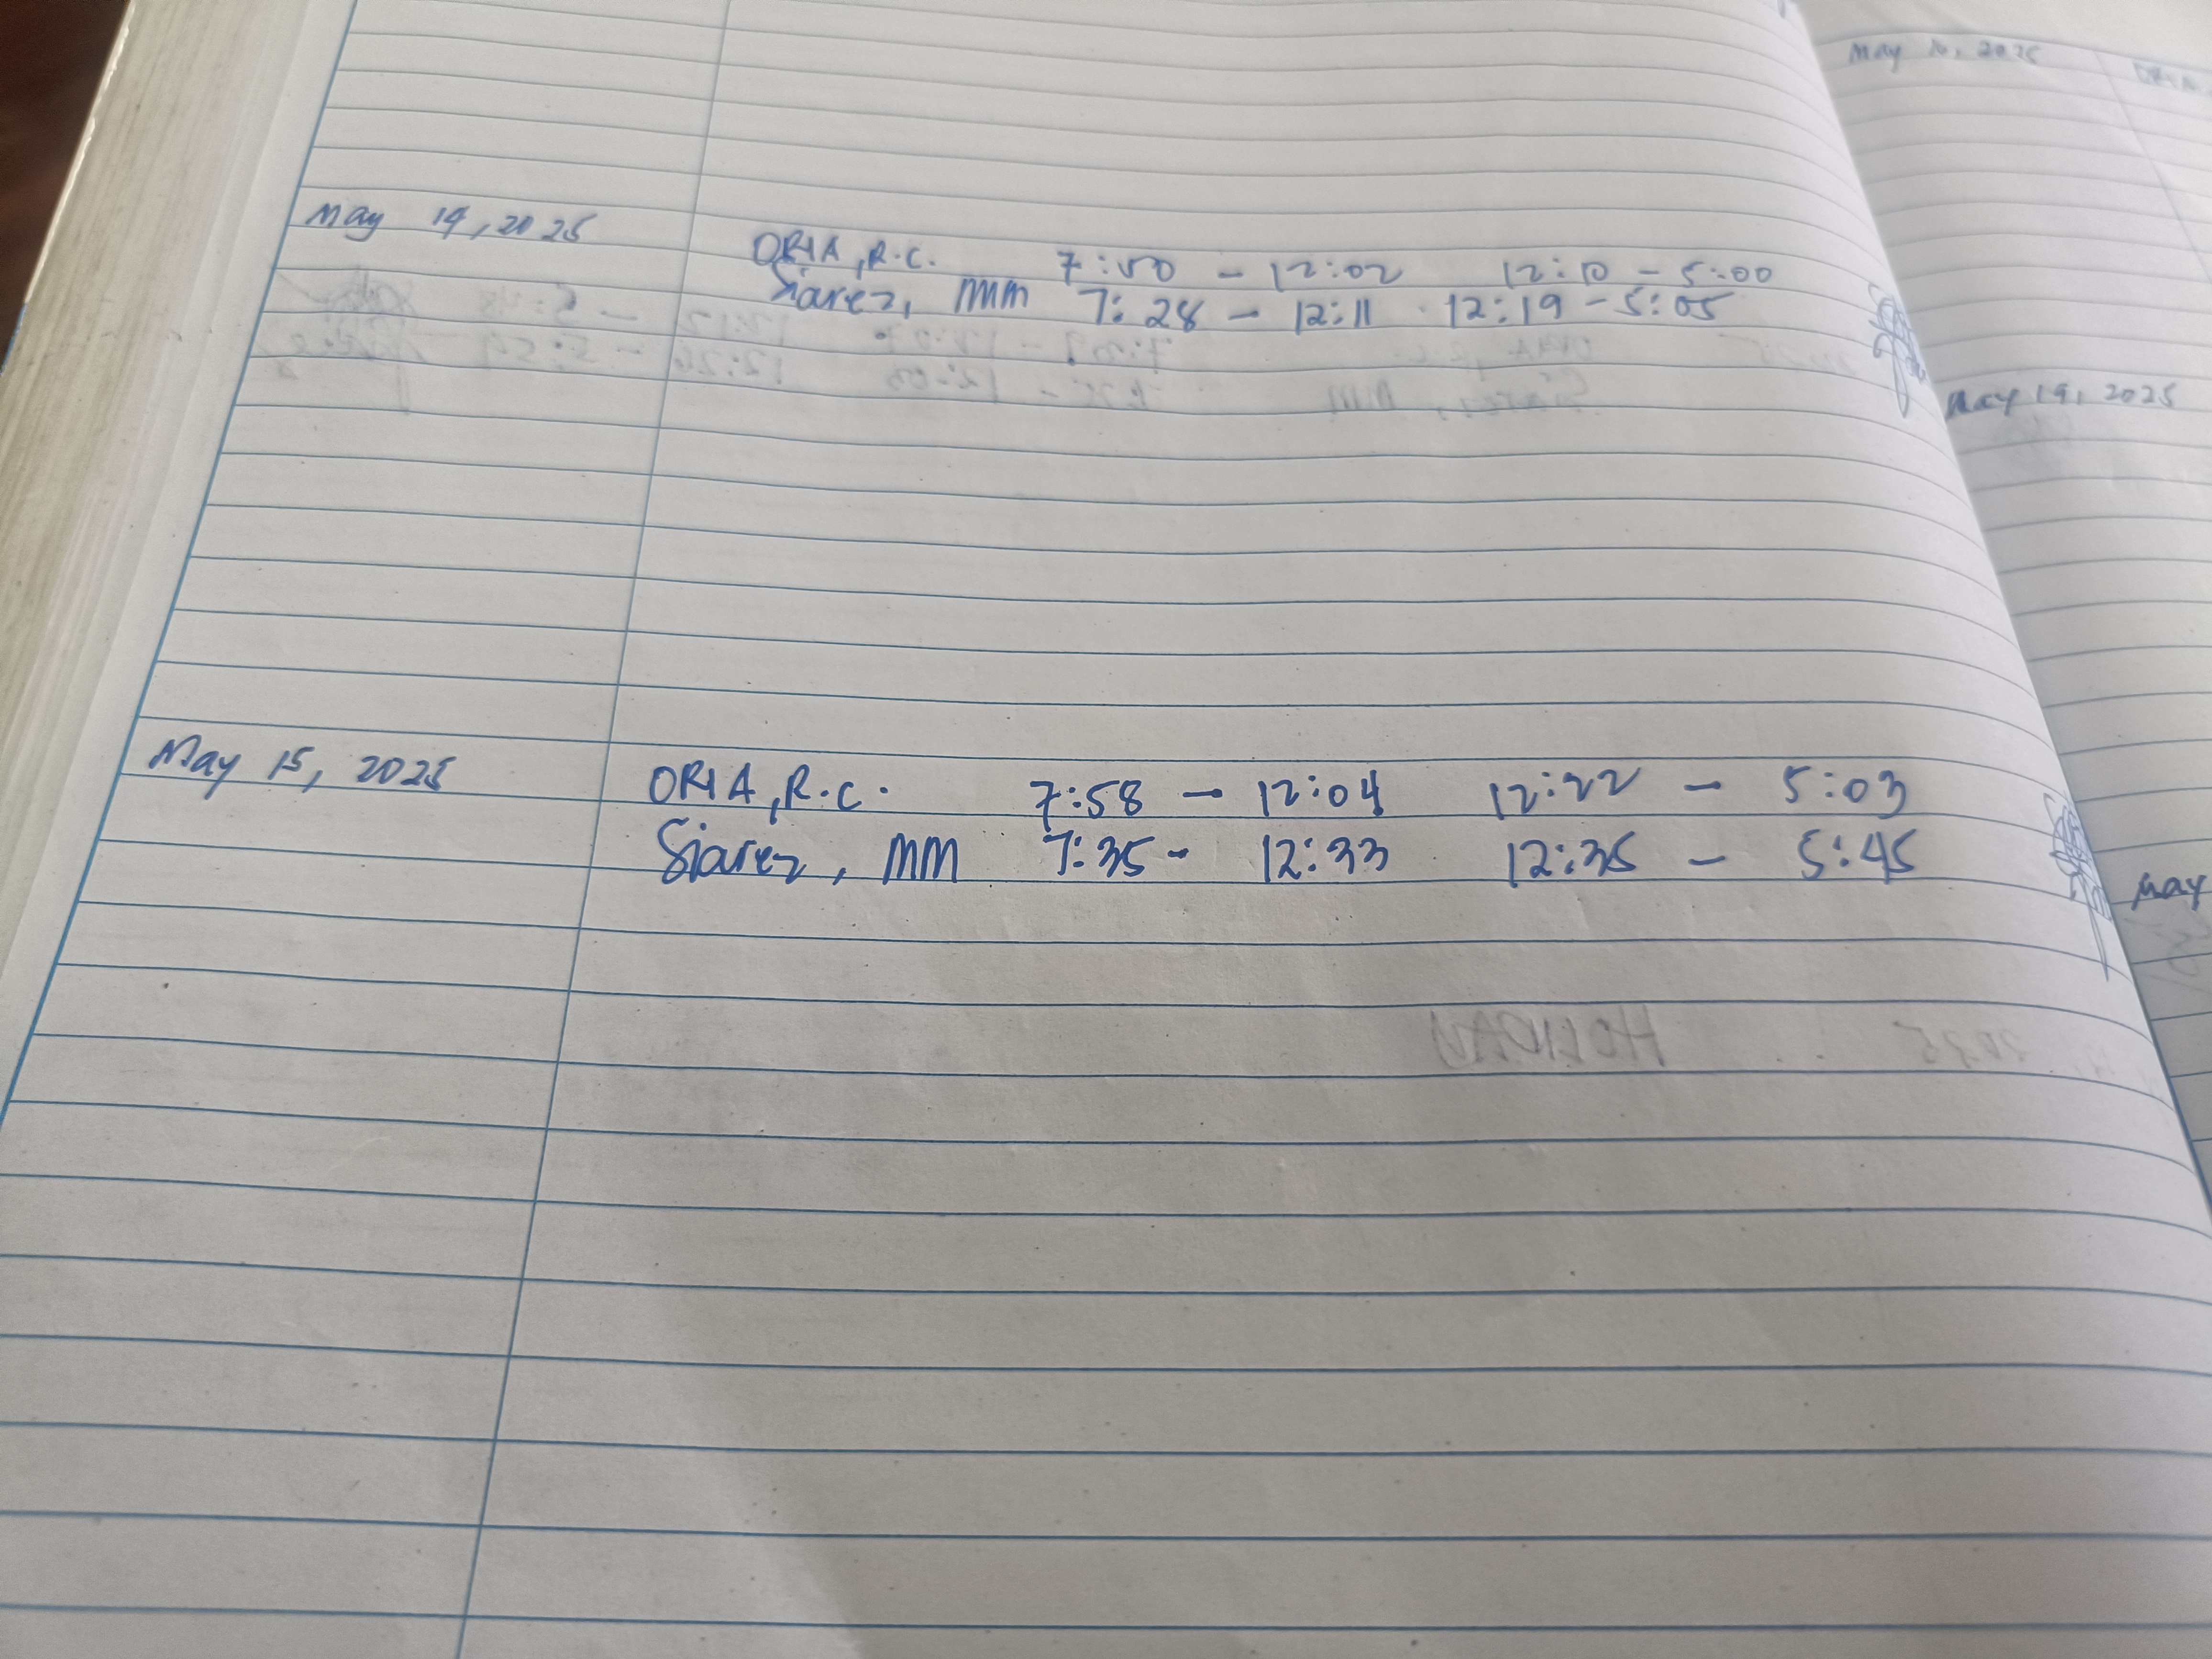 May 14, 2025
ORIA, R.C. 7:50 - 12:02 12:10 - 5:00
Siarez, MM 7:28 - 12:11 12:19 - 5:05
May 15, 2025
ORIA, R.C. 7:58 - 12:04 12:22 - 5:03
Siarez, MM 7:35 - 12:33 12:35 - 5:45
May 16, 2025
ORIA
May 19, 2025
May